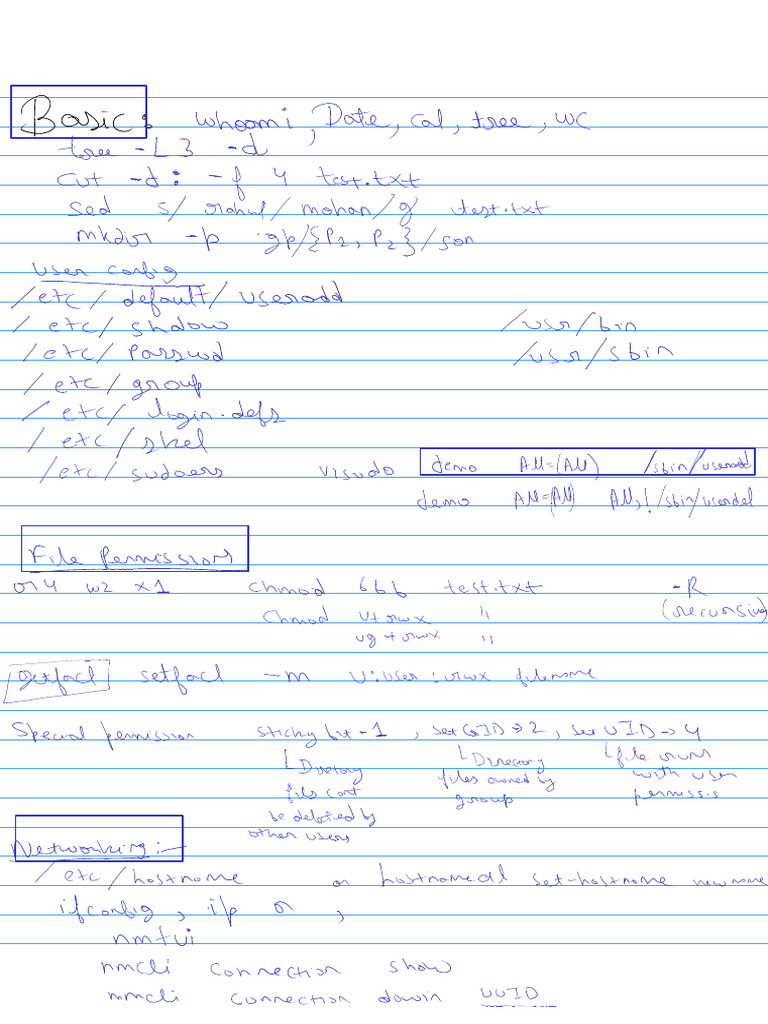 Basic: whoami, Date, cal, tree, wc
tree -L 3 -d
cut -d: -f 4 test.txt
sed s/rahul/mohan/g test.txt
mkdir -p gp/{P2, P2}/son
user config
/etc/default/useradd
/etc/shdow /usr/bin
/etc/passwd /usr/sbin
/etc/group
/etc/login.defs
/etc/skel
/etc/sudoers visudo demo All=(All) /sbin/useradd
demo All=(All) All,!/sbin/userdel
File Permissions
r4 w2 x1 chmod 666 test.txt -R
chmod u+rwx " (recursive)
ug+rwx "
getfacl setfacl -m u:user:rwx filename
Special permission sticky bit-1, set GID→2, set UID→4
↳Directory ↳Directory ↳file runs
files cant files owned by with user
be deleted by group permissis
other users
Networking:-
/etc/hostname or hostnamectl set-hostname newname
ifconfig, i/p a,
nmtui
nmcli connection show
nmcli connection down UUID